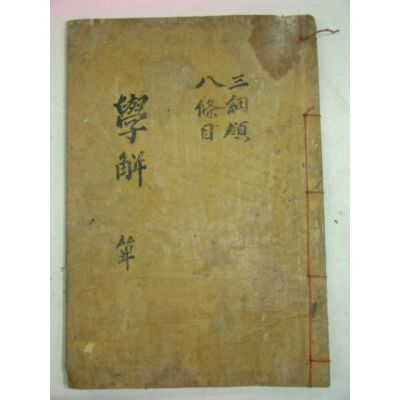 三綱領
八條目
學解 単